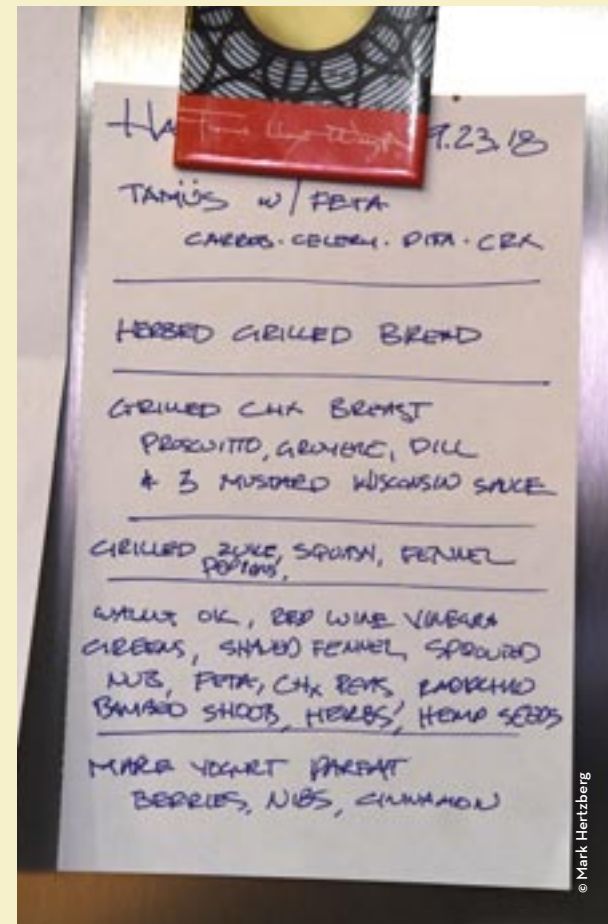 HA 9.23.18
TAMÜS w/ FETA
CARROB · CELERY · PITA · CRX
HERBED GRILLED BREAD
GRILLED CHX BREAST
PROSCUITTO, GRUYERE, DILL
& 3 MUSTARD WISCONSIN SAUCE
GRILLED ZUKE, SQUASH, FENNEL
PEPPERS,
WALNUT OIL, RED WINE VINEGAR
GREENS, SHAVED FENNEL, SPROUTED
NUB, FETA, CHX PEAS, RADICCHIO
BAMBOO SHOOB, HERBS, HEMP SEEDS
YOGURT PARFAIT
BERRIES, NIBS, CINNAMON
© Mark Hertzberg